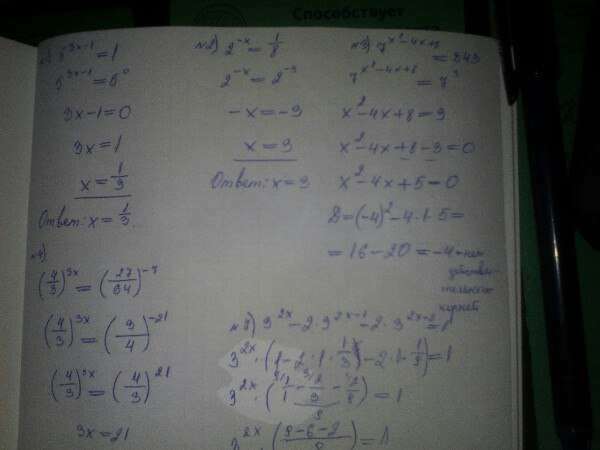 Способствует
5^{3x-1} = 1
5^{3x-1} = 5^0
3x-1=0
3x=1
x = 1/3
Ответ: x = 1/3.
№2) 2^{-x} = 1/8
2^{-x} = 2^{-3}
-x = -3
x = 3
Ответ: x = 3
№3) 7^{x²-4x+8} = 343
7^{x²-4x+8} = 7³
x²-4x+8 = 3
x²-4x+8-3=0
x²-4x+5=0
D=(-4)²-4·1·5=
=16-20=-4 нет
действи-
тельных
корней
№4)
(4/3)^{3x} = (27/64)^{-7}
(4/3)^{3x} = (3/4)^{-21}
(4/3)^{3x} = (4/3)^{21}
3x=21
3^{2x}-2·3^{2x-1}-2·3^{2x-2}=1
3^{2x}·(1-2·1·1/3-2·1·1/9)=1
= 1
3^{2x}·((9-6-2)/9)=1